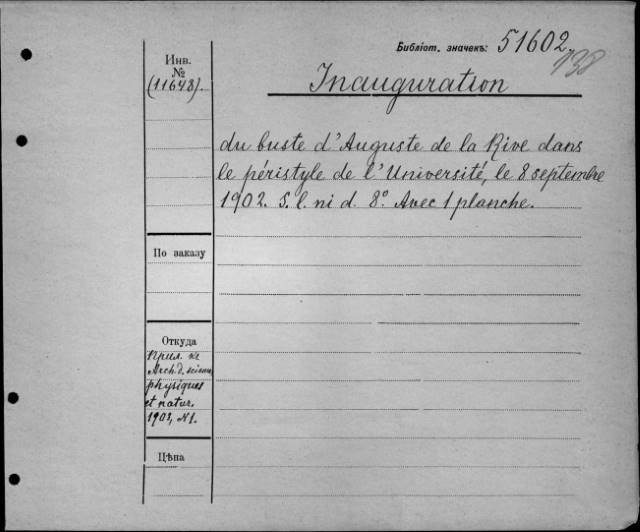 Библіот. значекъ: 51602.
138
Инв.
№
(11648).
Inauguration
du buste d'Auguste de la Rive dans
le péristyle de l'Université, le 8 septembre
1902. S. l. ni d. 8°. Avec 1 planche.
По заказу
Откуда
Прил. къ
Arch. d. scienc.
physiques
et natur.
1903, №1.
Цѣна